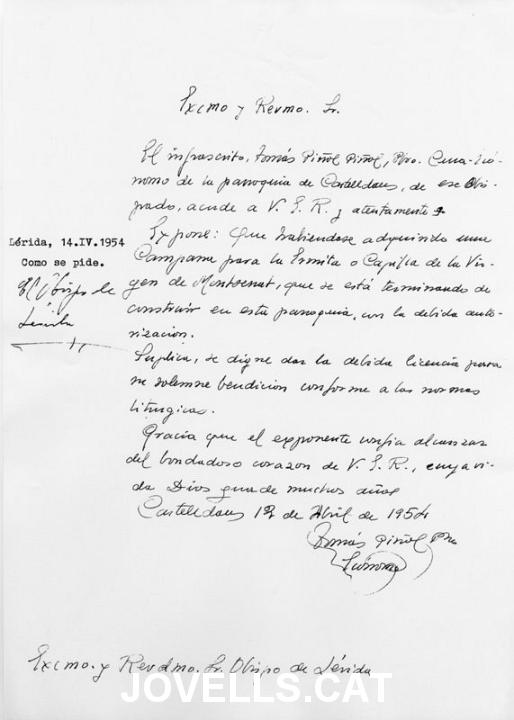 Excmo y Revmo. Sr.
El infrascrito, Tomás Piñol Piñol, Pbro. Cura-Ecó-
nomo de la parroquia de Castelldans, de ese Obis-
pado, acude a V. E. R. y atentamente
Expone: Que habiendose adquirido una
Campana para la Ermita o Capilla de la Vir-
gen de Montserrat, que se está terminando de
construir en esta parroquia, con la debida auto-
rización.
Suplica, se digne dar la debida licencia para
su solemne bendicion conforme a las normas
liturgicas.
Gracia que el exponente confia alcanzar
del bondadoso corazon de V. E. R., cuya vi-
da Dios guarde muchos años
Castelldans 12 de Abril de 1954
Tomás Piñol Pbro
Ecónomo
Lérida, 14.IV.1954
Como se pide.
El Obispo de
Lérida
Excmo. y Revdmo. Sr. Obispo de Lérida
JOVELLS.CAT